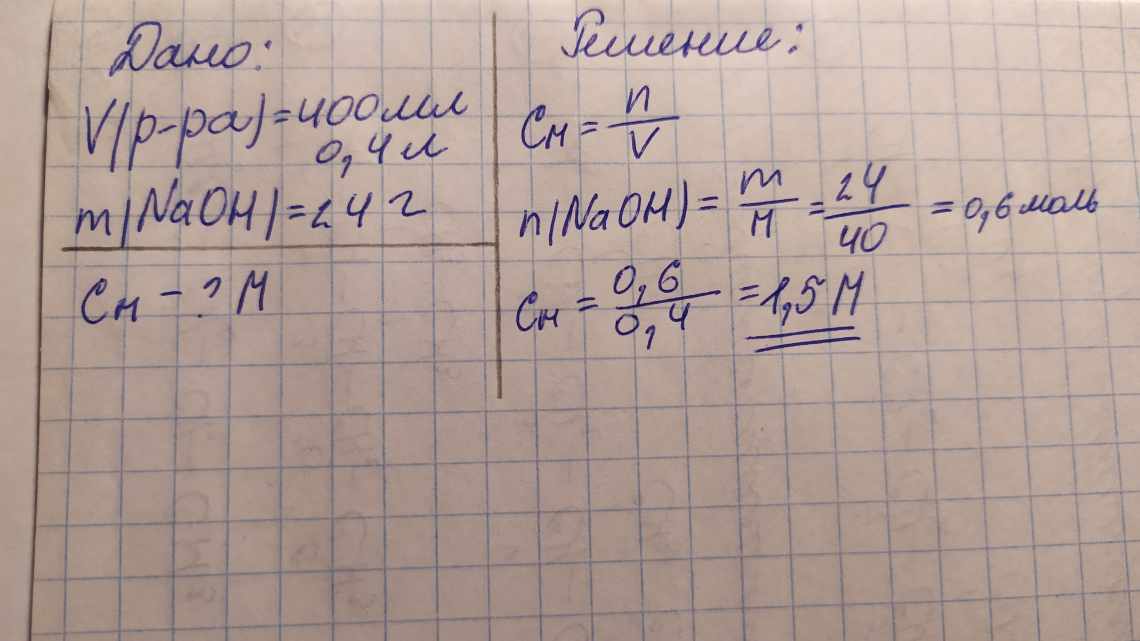 Дано:
V(р-ра)=400мл
0,4л
m(NaOH)=24г
Cм-? М
Решение:
Cм = n/V
n(NaOH) = m/М = 24/40 = 0,6 моль
Cм = 0,6/0,4 = 1,5 М